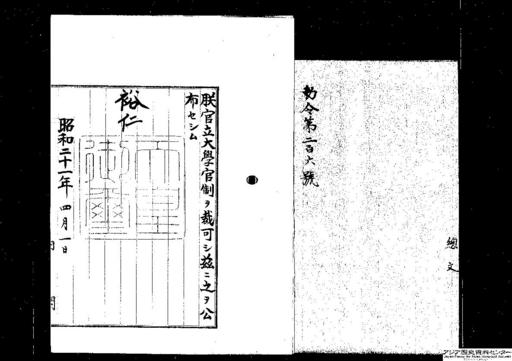 勅令第二百六號
總
文
朕官立大學官制ヲ裁可シ茲ニ之ヲ公
布セシム
裕仁
天皇
御璽
昭和二十一年四月一日
内
閣
アジア歴史資料センター